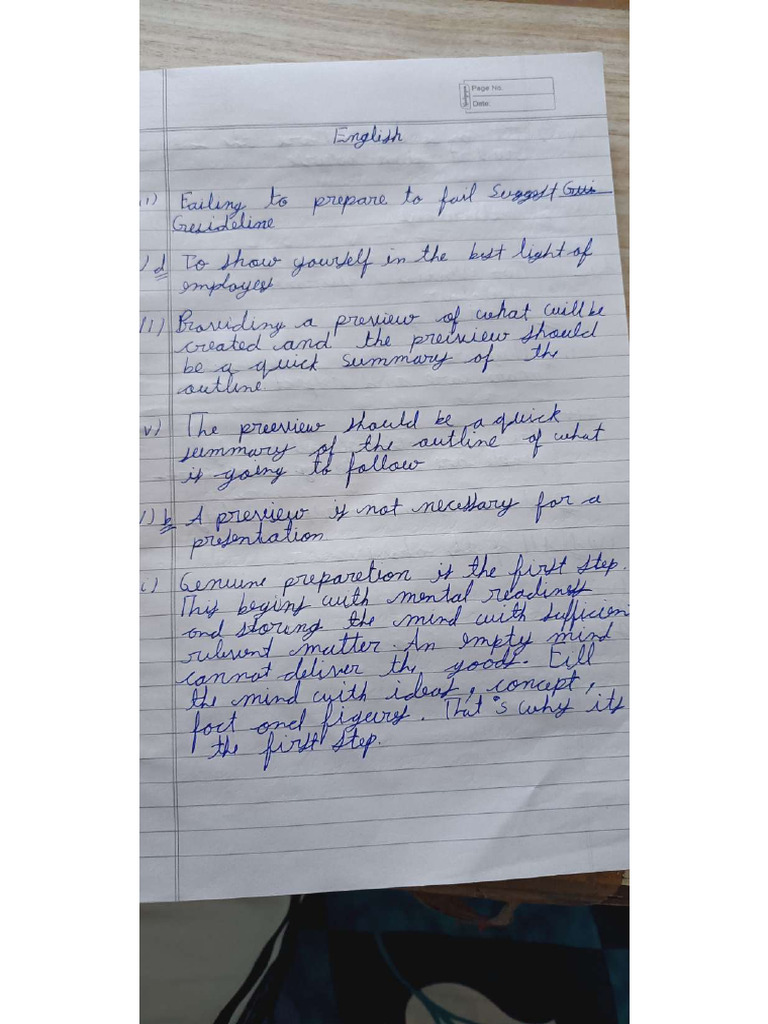 Page No.
Date:
English
i) Failing to prepare to fail Suggest Gui
Gesideline
) d To show yourself in the best light of
employes
ii) Providing a preview of what will be
created and the preiview should
be a quick summary of the
outline
v) The preeview should be a quick
summary of the outline of what
is going to follow
i) b A preview is not necessary for a
presentation
i) Genuine preparetion is the first step.
This begins with mental readiness
and storing the mind with sufficien
rulevent matter. An empty mind
cannot deliver the goods. Fill
the mind with ideas, concept,
fact and figures. That's why its
the first step.